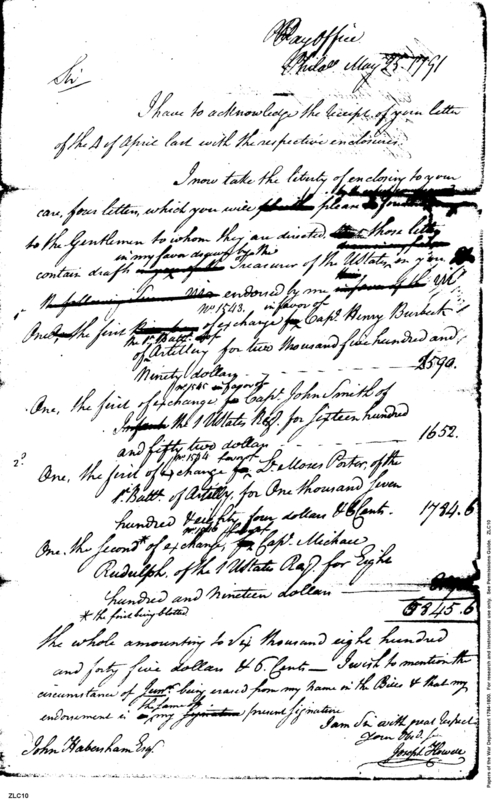 Pay Office
Philad. May 25th 1791
Sir
I have to acknowledge the receipt of your letter
of the 4 of April last with the respective enclosures.
I now take the liberty of enclosing to your
care, four letters, which you will please
to the Gentlemen to whom they are directed those letters
in my favor drawn by the
contain drafts Treasurer of the UStates, on you
endorsed by me
No 1543. in favor of
One, the first of exchange Capt. Henry Burbeck
the 1st Batt.
of Artillery for two thousand five hundred and
Ninety dollars 2590.
No 1545 in favor of
One, the first of exchange Capt. John Smith of
the 1 UStates Reg. for Sixteen hundred
and fifty two dollars 1652.
No 1544
One, the first of exchange Lt. Moses Porter, of the
1st Batt. of Artillery, for One thousand Seven
hundred & eighty four dollars & 6 Cents. 1784.6
One, the Second* of exchange, Capt. Michael
Rudulph, of the 1 UStates Reg. for Eight
hundred and Nineteen dollars
* the first being blotted
6845.6
the whole amounting to Six thousand eight hundred
and forty five dollars & 6 Cents — I wish to mention the
circumstance of being erased from my name in the Bills & that my
the same as
endorsement is my present signature
I am Sir with great Respect
John Habersham Esqr.
Joseph Howell
ZLC10
Papers of the War Department 1784-1800. For research and instructional use only. See Permissions Guide. ZLC10